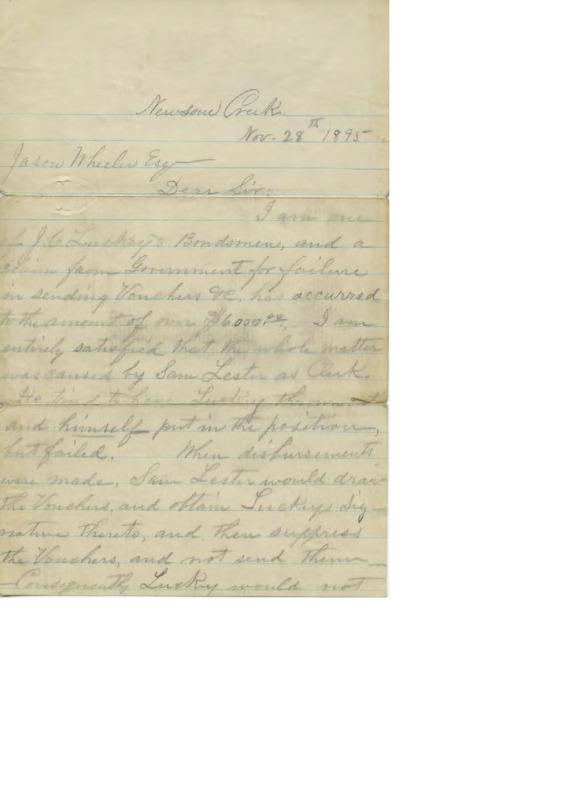 Newsome Creek
Nov. 28th 1895
Jason Wheeler Esq
Dear Sir:
I am one
of J. C. Luckey's Bondsmen, and a
claim from Government for failure
in sending Vouchers &c, has occurred
to the amount of over $6000.00. I am
entirely satisfied that the whole matter
was caused by Sam Lester as Clerk.
He tried to have Luckey thrown out
and himself put in the position,
but failed. When disbursements
were made, Sam Lester would draw
the Vouchers, and obtain Luckeys Sig-
nature thereto, and then suppress
the Vouchers, and not send them
Consequently Luckey would not